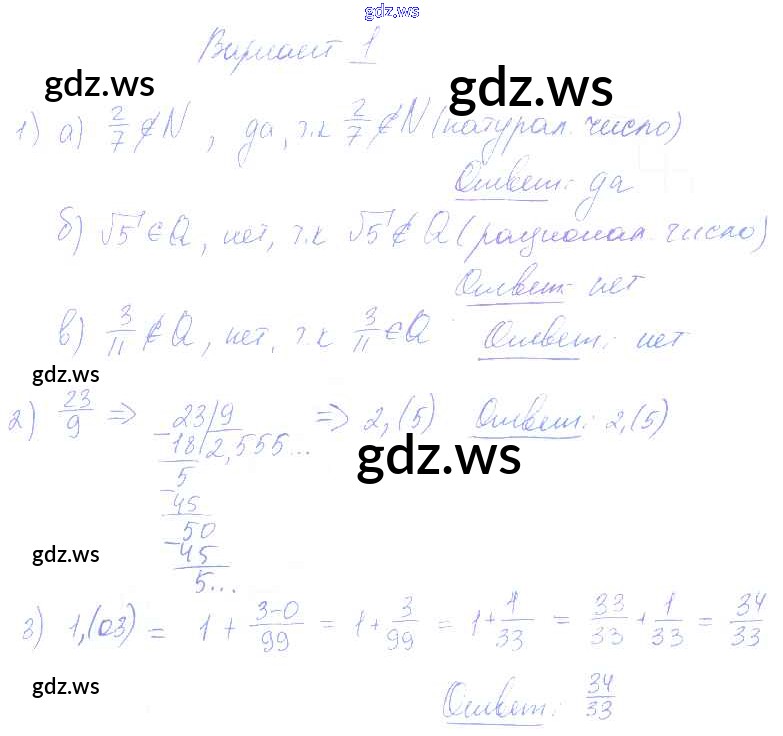 gdz.ws
Вариант 1
gdz.ws gdz.ws
1) а) 2/7 ∉ N, да, т.к 2/7 ∉ N (натурал. число)
Ответ: да
б) √5 ∈ Q, нет, т.к √5 ∉ Q (рационал. число)
Ответ: нет
в) 3/11 ∉ Q, нет, т.к 3/11 ∈ Q Ответ: нет
gdz.ws
2) 23/9 => 23|9 => 2,(5) Ответ: 2,(5)
-18|2,555...
gdz.ws
5
-45
50
gdz.ws
-45
5...
3) 1,(03) = 1 + 3-0/99 = 1 + 3/99 = 1 + 1/33 = 33/33 + 1/33 = 34/33
gdz.ws
Ответ: 34/33